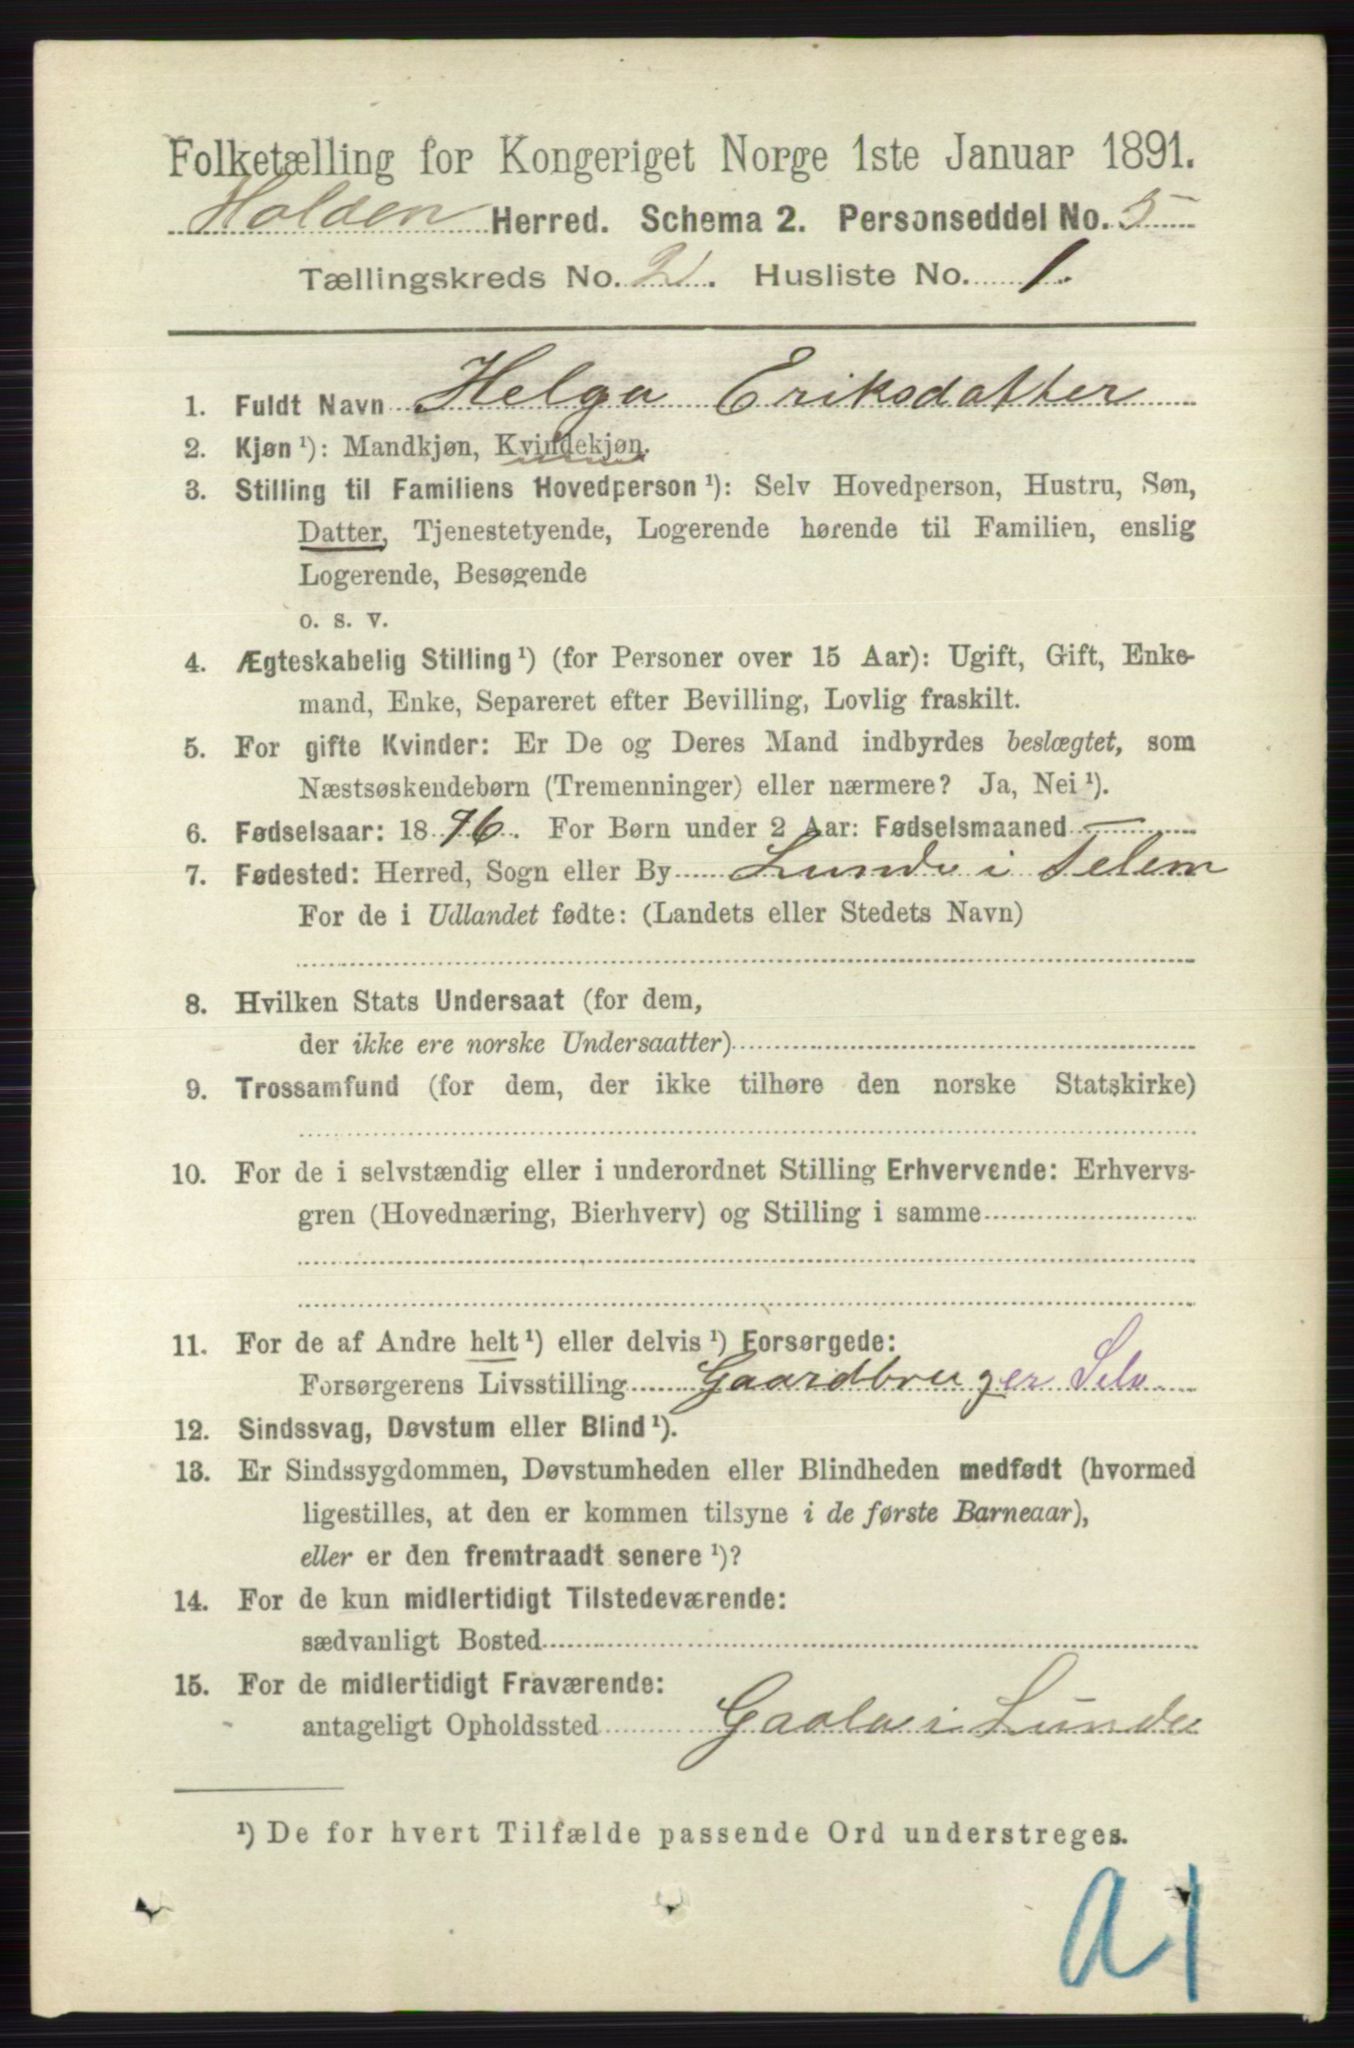 Folketælling for Kongeriget Norge 1ste Januar 1891.
Holden Herred. Schema 2. Personseddel No. 5
Tællingskreds No. 2. Husliste No. 1.
1. Fuldt Navn Helga Eriksdatter
2. Kjøn ¹): Mandkjøn, Kvindekjøn.
3. Stilling til Familiens Hovedperson ¹): Selv Hovedperson, Hustru, Søn,
Datter, Tjenestetyende, Logerende hørende til Familien, enslig
Logerende, Besøgende
o. s. v.
4. Ægteskabelig Stilling ¹) (for Personer over 15 Aar): Ugift, Gift, Enke-
mand, Enke, Separeret efter Bevilling, Lovlig fraskilt.
5. For gifte Kvinder: Er De og Deres Mand indbyrdes beslægtet, som
Næstsøskendebørn (Tremenninger) eller nærmere? Ja, Nei ¹).
6. Fødselsaar: 1876. For Børn under 2 Aar: Fødselsmaaned —
7. Fødested: Herred, Sogn eller By Lunde i Telem
For de i Udlandet fødte: (Landets eller Stedets Navn)
8. Hvilken Stats Undersaat (for dem,
der ikke ere norske Undersaatter)
9. Trossamfund (for dem, der ikke tilhøre den norske Statskirke)
10. For de i selvstændig eller i underordnet Stilling Erhvervende: Erhvervs-
gren (Hovednæring, Bierhverv) og Stilling i samme
11. For de af Andre helt ¹) eller delvis ¹) Forsørgede:
Forsørgerens Livsstilling Gaardbruger Selv
12. Sindssvag, Døvstum eller Blind ¹).
13. Er Sindssygdommen, Døvstumheden eller Blindheden medfødt (hvormed
ligestilles, at den er kommen tilsyne i de første Barneaar),
eller er den fremtraadt senere ¹)?
14. For de kun midlertidigt Tilstedeværende:
sædvanligt Bosted
15. For de midlertidigt Fraværende:
antageligt Opholdssted Gaala i Lunde
¹) De for hvert Tilfælde passende Ord understreges.
a1